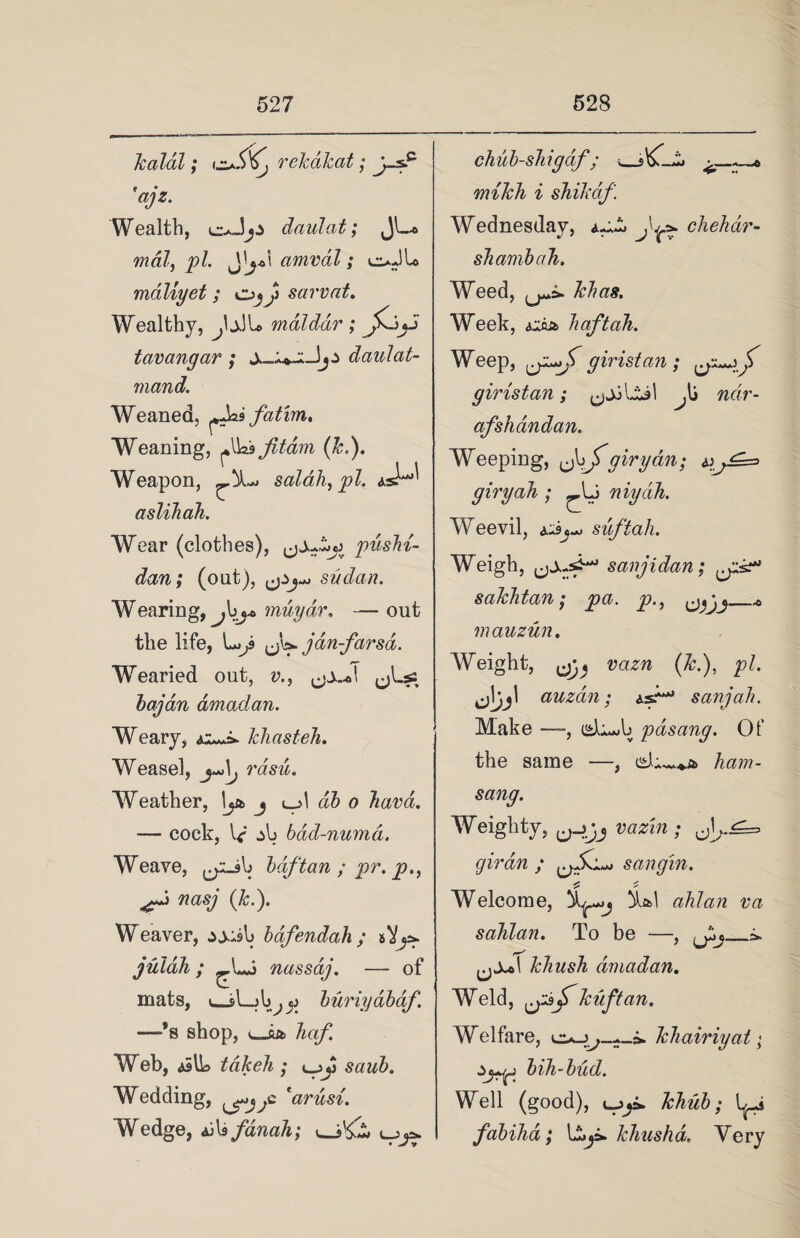 527
528
kalál; رکاکت rekákat; عجز
'ajz.
Wealth, دولت daulat; مال
mál, pl. اموال amvál; مالیت
máliyet; ثروت sarvat.
Wealthy, مالدار máldár; توانگر
tavangar; دولتمند daulat-
mand.
Weaned, فطیم fatím.
Weaning, فطام fitám (k.).
Weapon, سلاح saláh, pl. اسلحه
aslihah.
Wear (clothes), پوشیدن púshí-
dan; (out), سودن súdan.
Wearing, مویار múyár. — out
the life, جان فرسا ján-farsá.
Wearied out, v., بجان آمدن
baján ámadan.
Weary, خسته khasteh.
Weasel, راسو rású.
Weather, آب و هوا áb o havá.
— cock, باد نما bád-numá.
Weave, بافتن báftan; pr. p.,
نسج nasj (k.).
Weaver, بافنده báfendah; جولاه
júláh; نساج nassáj. — of
mats, بوریاباف búriyábáf.
—'s shop, هف haf.
Web, تاکه tákeh; ثوب saub.
Wedding, عروسی 'arúsí.
Wedge, فانه fánah; چوب شکاف
chúb-shigáf; میخ شکاف
míkh i shikáf.
Wednesday, چهار شنبه chehár-
shambah.
Weed, خس khas.
Week, هفته haftah.
Weep, گرستن giristan; گریستن
girístan; نار افشاندن nár-
afshándan.
Weeping, گریان giryán; گریه
giryah; نیاح niyáh.
Weevil, سوفته súftah.
Weigh, سنجیدن sanjidan; سختن
sakhtan; pa. p., موزون
mauzún.
Weight, وزن vazn (k.), pl.
اوزان auzán; سنجه sanjah.
Make —, پاسنگ pásang. Of
the same —, همسنگ ham-
sang.
Weighty, وزین vazín; گران
girán; سنگین sangín.
Welcome, اهلا وسهلا ahlan va
sahlan. To be —, خوش
آمدن khush ámadan.
Weld, کوفتن kúftan.
Welfare, خیریت khairiyat;
بهبود bih-búd.
Well (good), خوب khúb; فبها
fabihá; خوشا khushá. Very